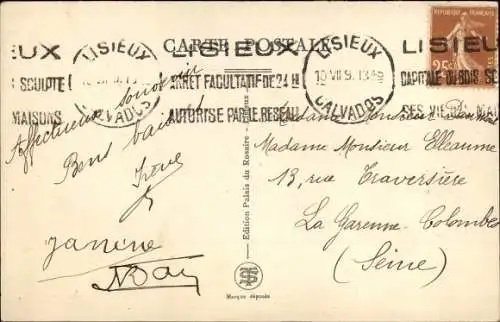 CARTE POSTALE
LISIEUX
CALVADOS
LISIEUX
ARRET FACULTATIF DE 24 H
AUTORISE PAR LE RESEAU
LISIEUX
10 VII 9. 13
CALVADOS
LISIEU
CAPITALE DU BOIS SC
SES VIE MAI
IEUX
SCULPTE
MAISONS
REPUBLIQUE FRANÇAISE
25c
Affectueux souvenir
Bons baisers
Irène
Janine
Madame Monsieur
Madame Monsieur Elleaume
13, rue Traversière
La Garenne-Colombes
(Seine)
Edition Palais du Rosaire
Marque déposée